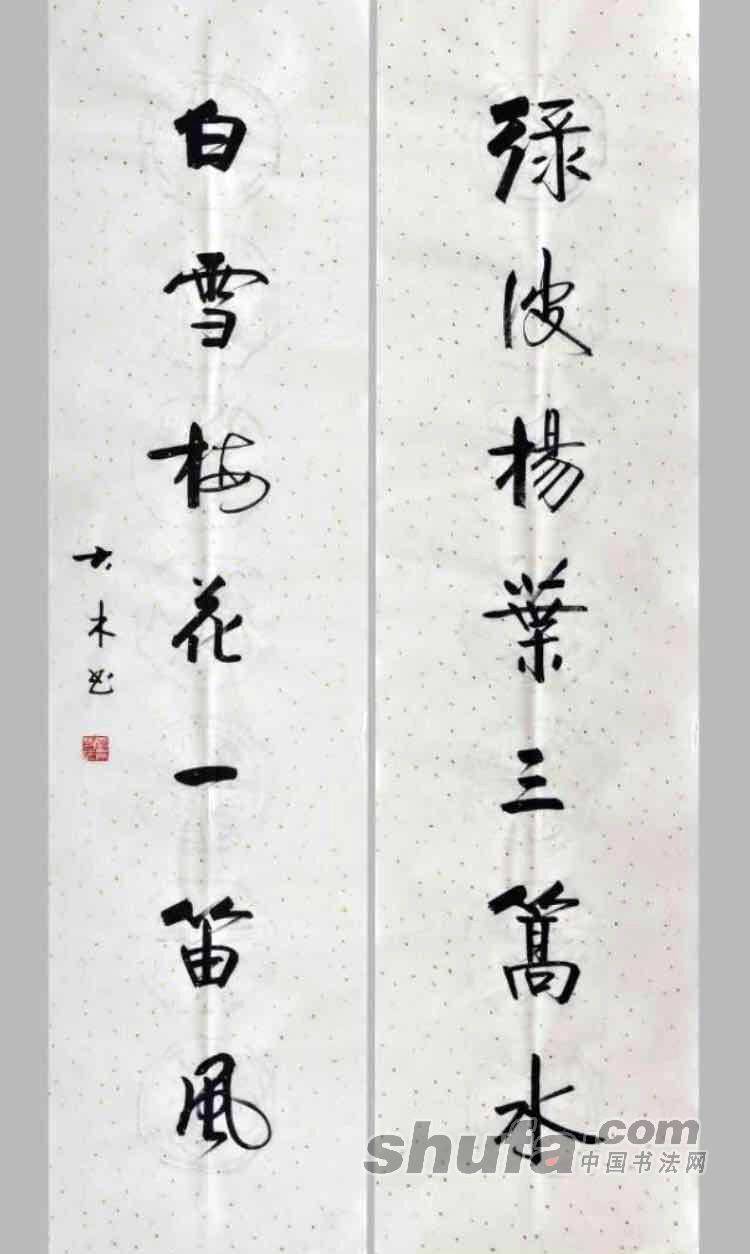 绿波楊葉三篙水
白雪梅花一笛風
大木书
shufa.com
中国书法网